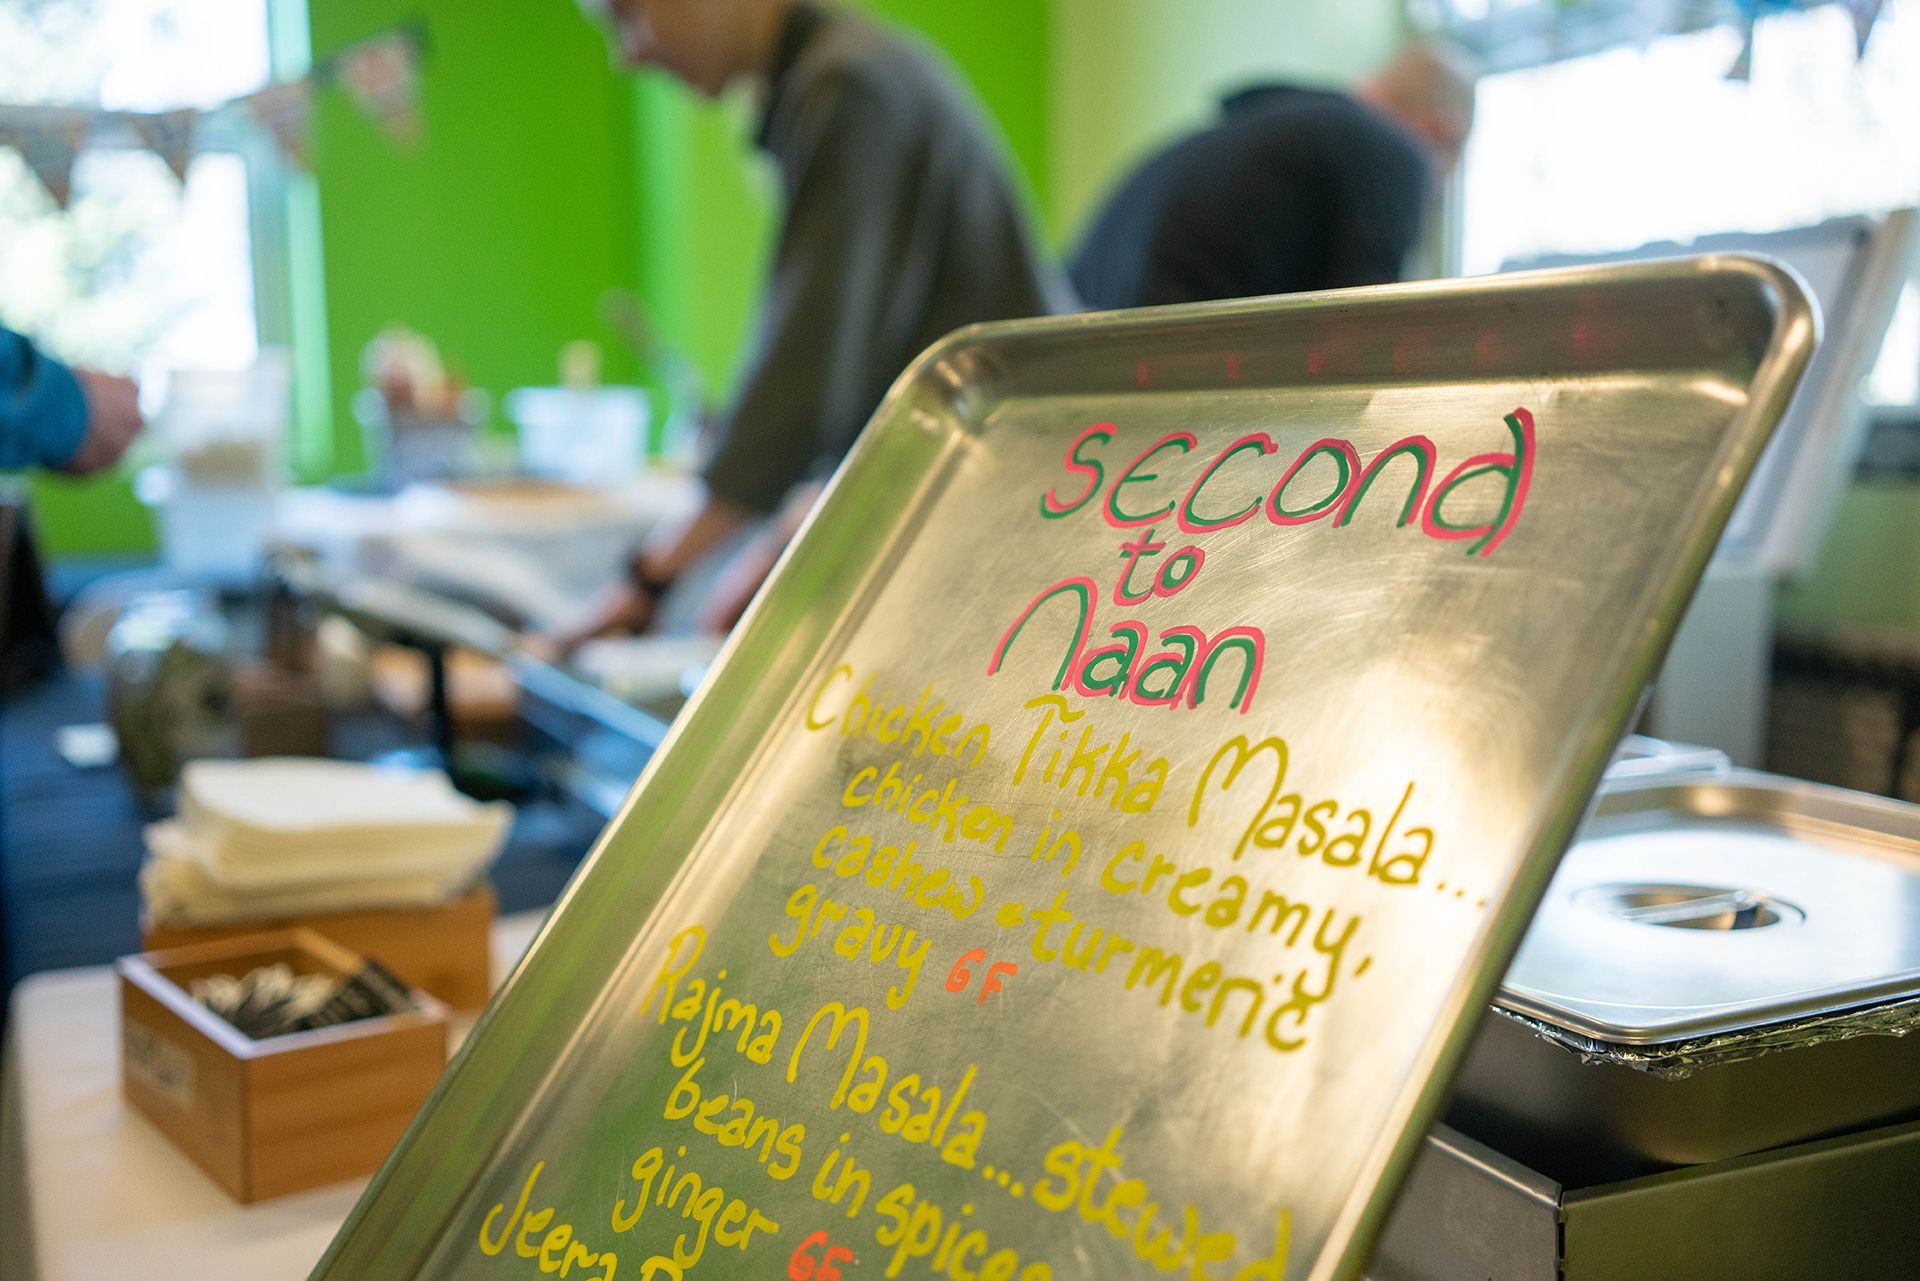 second
to
Naan
Chicken Tikka Masala...
chicken in creamy,
cashew & turmeric
gravy GF
Rajma Masala... stewed
beans in spices
ginger GF
Jeera